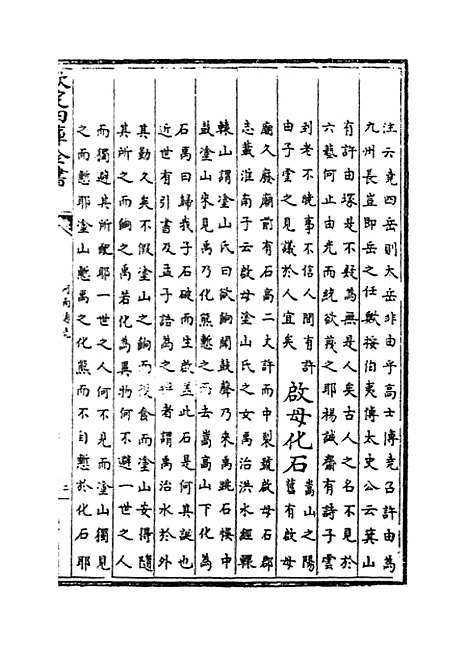 注六堯四岳則大岳非由乎高士傳堯召許由為
九州長豈即岳之任歟按伯夷傳太史公云箕山
有許由塚是不疑為無是人矣古人之名不見於
六藝何止由光而統欲蔑之耶楊誠齋有詩子雲
到老不曉事不信人間有許
由子雲之見議於人宜矣
啟母化石
嵩山之陽
舊有啟母
廟久廢廟前有石高二丈許而中裂號啟母石郡
志載淮南子云啟母塗山氏之女禹治洪水經轘
轅山謂塗山氏曰欲餉聞鼓聲乃來禹跳石悞中
鼓塗山來見禹乃化熊慙之而去嵩高山下化為
石禹曰歸我子石破而生啟蓋此石是何其誕也
近世有引書及孟子語為之者謂禹治水於外
其勤久矣不假塗山之餉而後食而塗山安得隨
其所之而餉之禹若化為異物何不避一世之人
而獨避其所配耶一世之人何不見而塗山獨見
之而慙耶塗山慙禹之化熊而不自慙於化石耶
欽定四庫全書